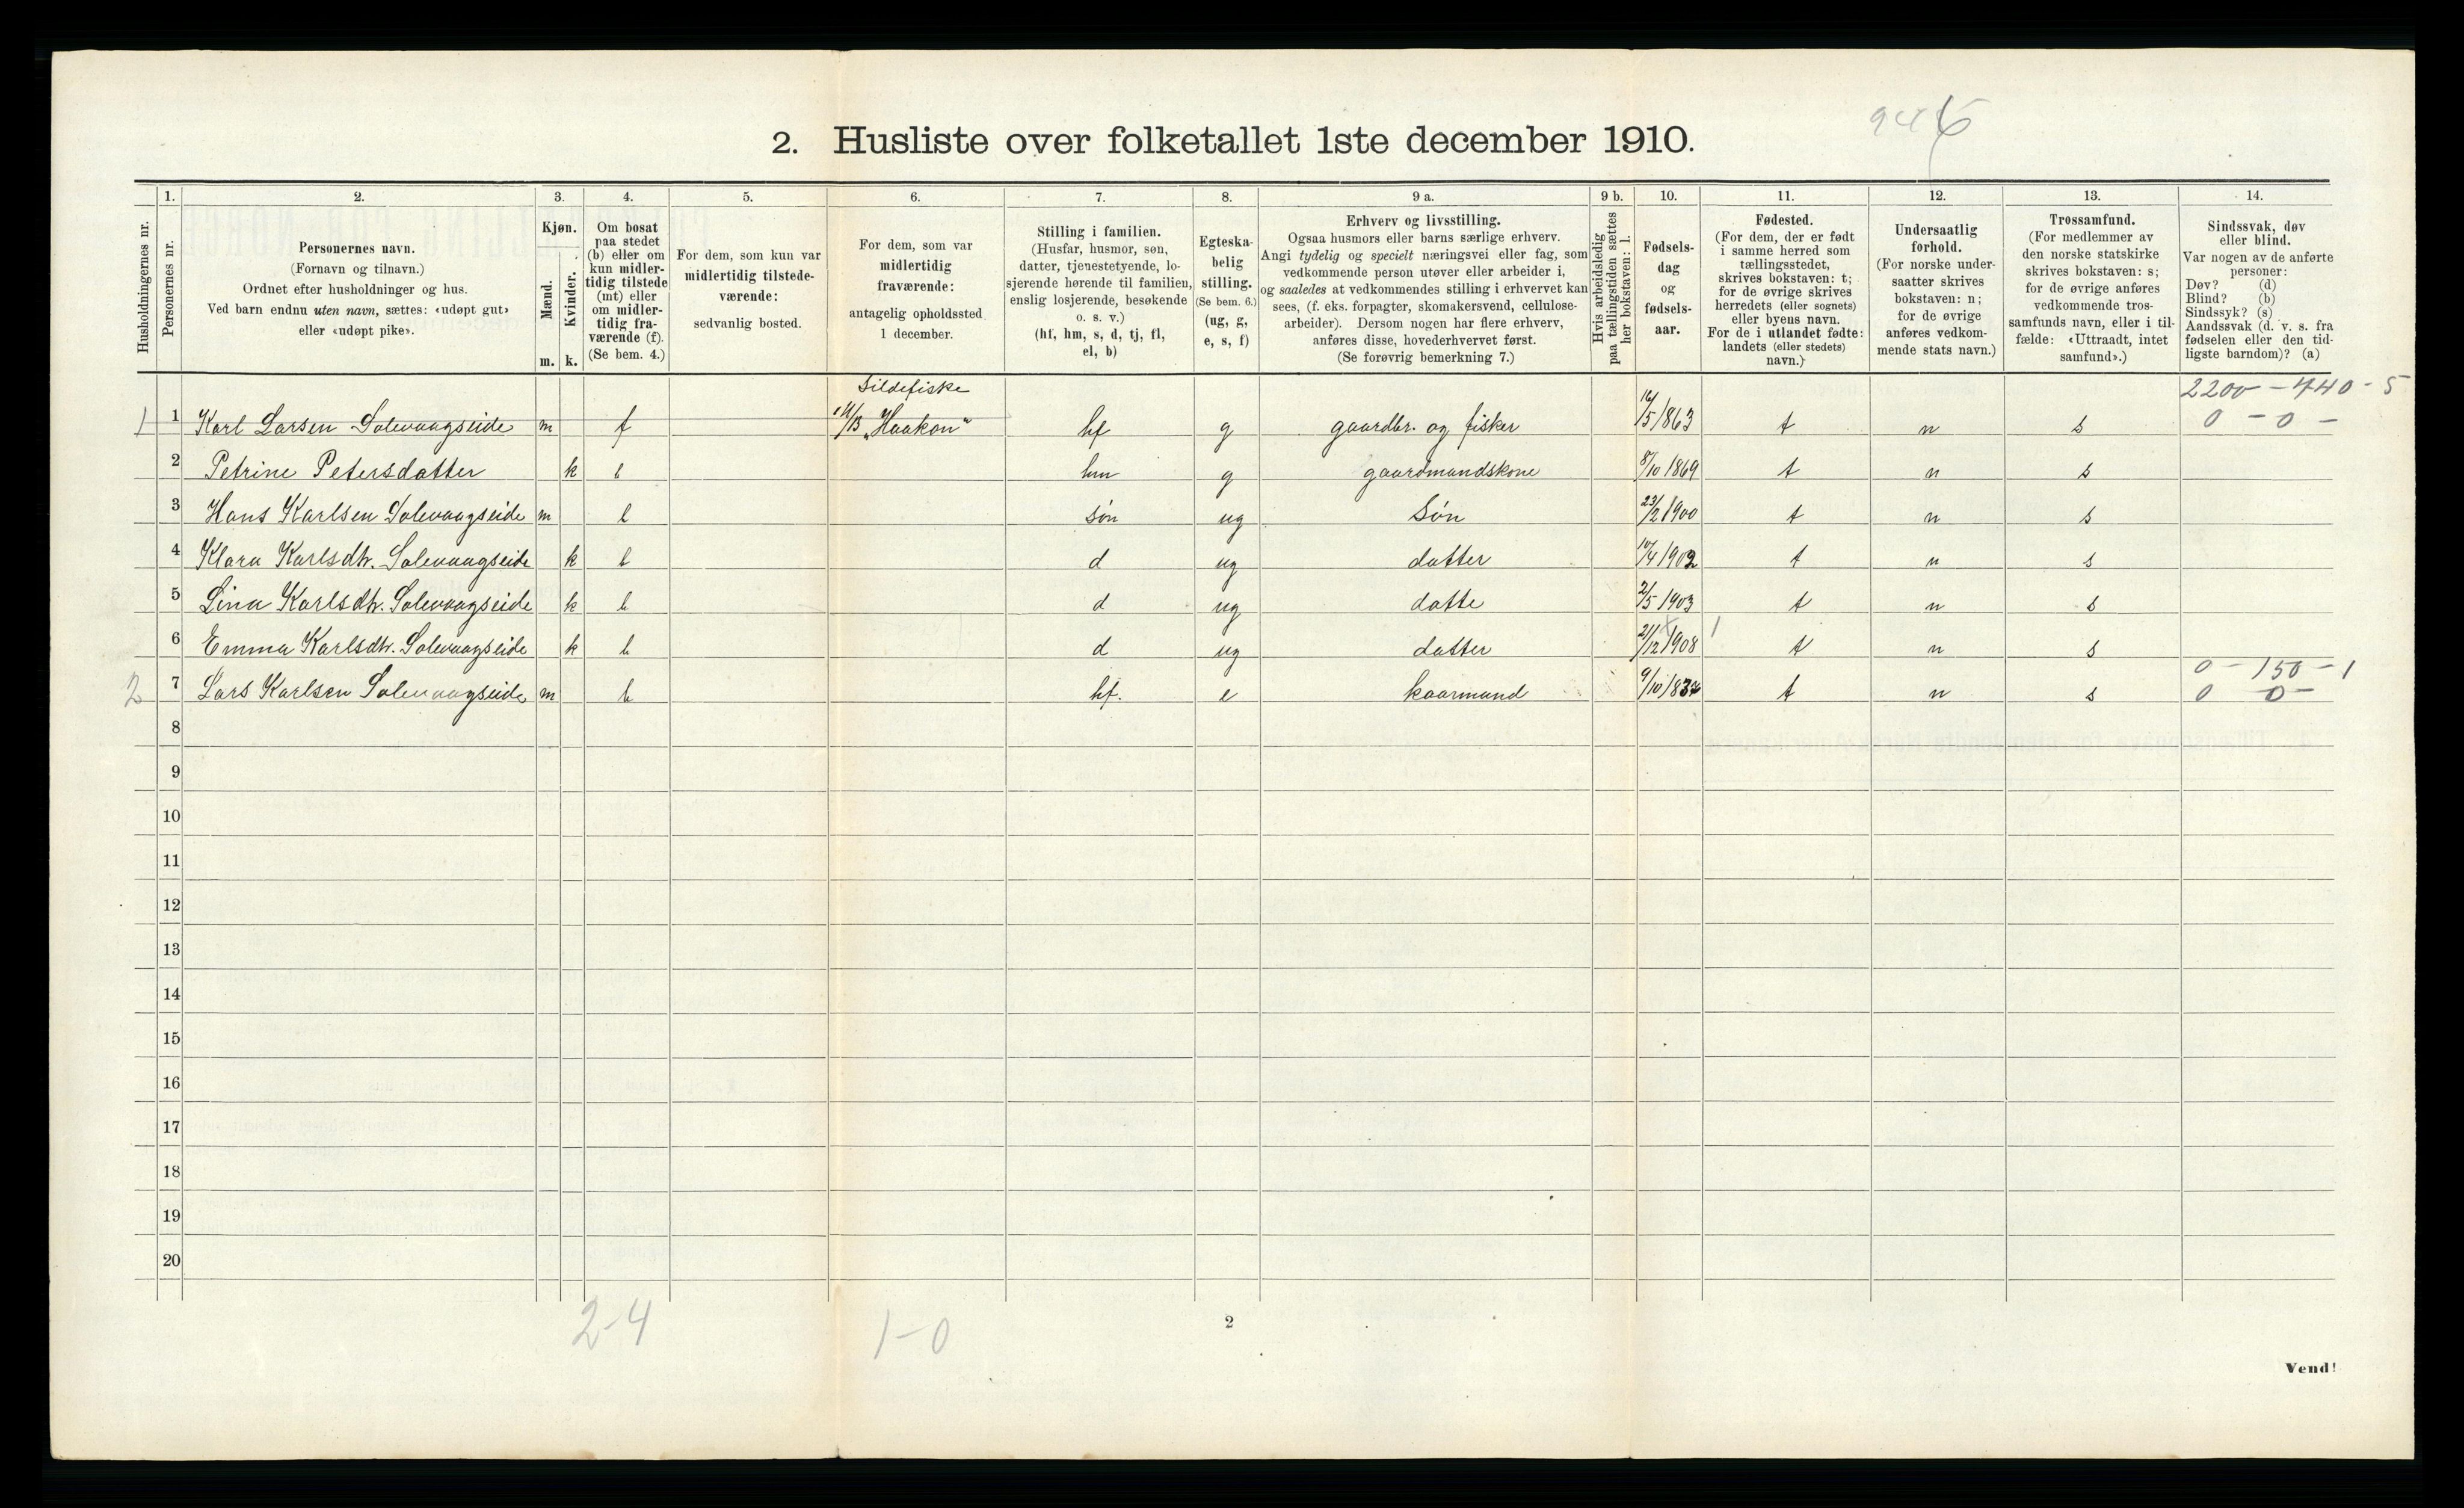 2. Husliste over folketallet 1ste december 1910.
Husholdningernes nr.
1.
Personernes nr.
2.
Personernes navn.
(Fornavn og tilnavn.)
Ordnet efter husholdninger og hus.
Ved barn endnu uten navn, sættes: «udøpt gut»
eller «udøpt pike».
3.
Kjøn.
Mænd.
m.
Kvinder.
k.
4.
Om bosat
paa stedet
(b) eller om
kun midler-
tidig tilstede
(mt) eller
om midler-
tidig fra-
værende (f).
(Se bem. 4.)
5.
For dem, som kun var
midlertidig tilstede-
værende:
sedvanlig bosted.
6.
For dem, som var
midlertidig
fraværende:
antagelig opholdssted
1 december.
7.
Stilling i familien.
(Husfar, husmor, søn,
datter, tjenestetyende, lo-
sjerende hørende til familien,
enslig losjerende, besøkende
o. s. v.)
(hf, hm, s, d, tj, fl,
el, b)
8.
Egteska-
belig
stilling.
(Se bem. 6.)
(ug, g,
e, s, f)
9 a.
Erhverv og livsstilling.
Ogsaa husmors eller barns særlige erhverv.
Angi tydelig og specielt næringsvei eller fag, som
vedkommende person utøver eller arbeider i,
og saaledes at vedkommendes stilling i erhvervet kan
sees, (f. eks. forpagter, skomakersvend, cellulose-
arbeider). Dersom nogen har flere erhverv,
anføres disse, hovederhvervet først.
(Se forøvrig bemerkning 7.)
9 b.
Hvis arbeidsledig
paa tællingstiden sættes
her bokstaven: l.
10.
Fødsels-
dag
og
fødsels-
aar.
11.
Fødested.
(For dem, der er født
i samme herred som
tællingsstedet,
skrives bokstaven: t;
for de øvrige skrives
herredets (eller sognets)
eller byens navn.
For de i utlandet fødte:
landets (eller stedets)
navn.)
12.
Undersaatlig
forhold.
(For norske under-
saatter skrives
bokstaven: n;
for de øvrige
anføres vedkom-
mende stats navn.)
13.
Trossamfund.
(For medlemmer av
den norske statskirke
skrives bokstaven: s;
for de øvrige anføres
vedkommende tros-
samfunds navn, eller i til-
fælde: «Uttraadt, intet
samfund».)
14.
Sindssvak, døv
eller blind.
Var nogen av de anførte
personer:
Døv? (d)
Blind? (b)
Sindssyk? (s)
Aandssvak (d. v. s. fra
fødselen eller den tid-
ligste barndom)? (a)
Sildefiske 2200 - 440 - 5
1 1 Karl Larsen Solevaagseide m f "Haakon" hf g gaardbr. og fisker 16/5 1863 t n s 0 - 0 -
2 Petrine Petersdatter k b hm g gaardmandskone 8/10 1869 t n s
3 Hans Karlsen Solevaagseide m b søn ug Søn 23/2 1900 t n s
4 Klara Karlsdtr. Solevaagseide k b d ug datter 10/4 1902 t n s
5 Lina Karlsdtr. Solevaagseide k b d ug datte 2/5 1903 t n s
6 Emma Karlsdtr. Solevaagseide k b d ug datter 21/12 1908 1 t n s
0 - 150 - 1
2 7 Lars Karlsen Solevaagseide m b hf. e kaarmand 9/10 t n s 0 0 -
8
9
10
11
12
13
14
15
16
17
18
19
20
2-4 1-0
2
Vend!